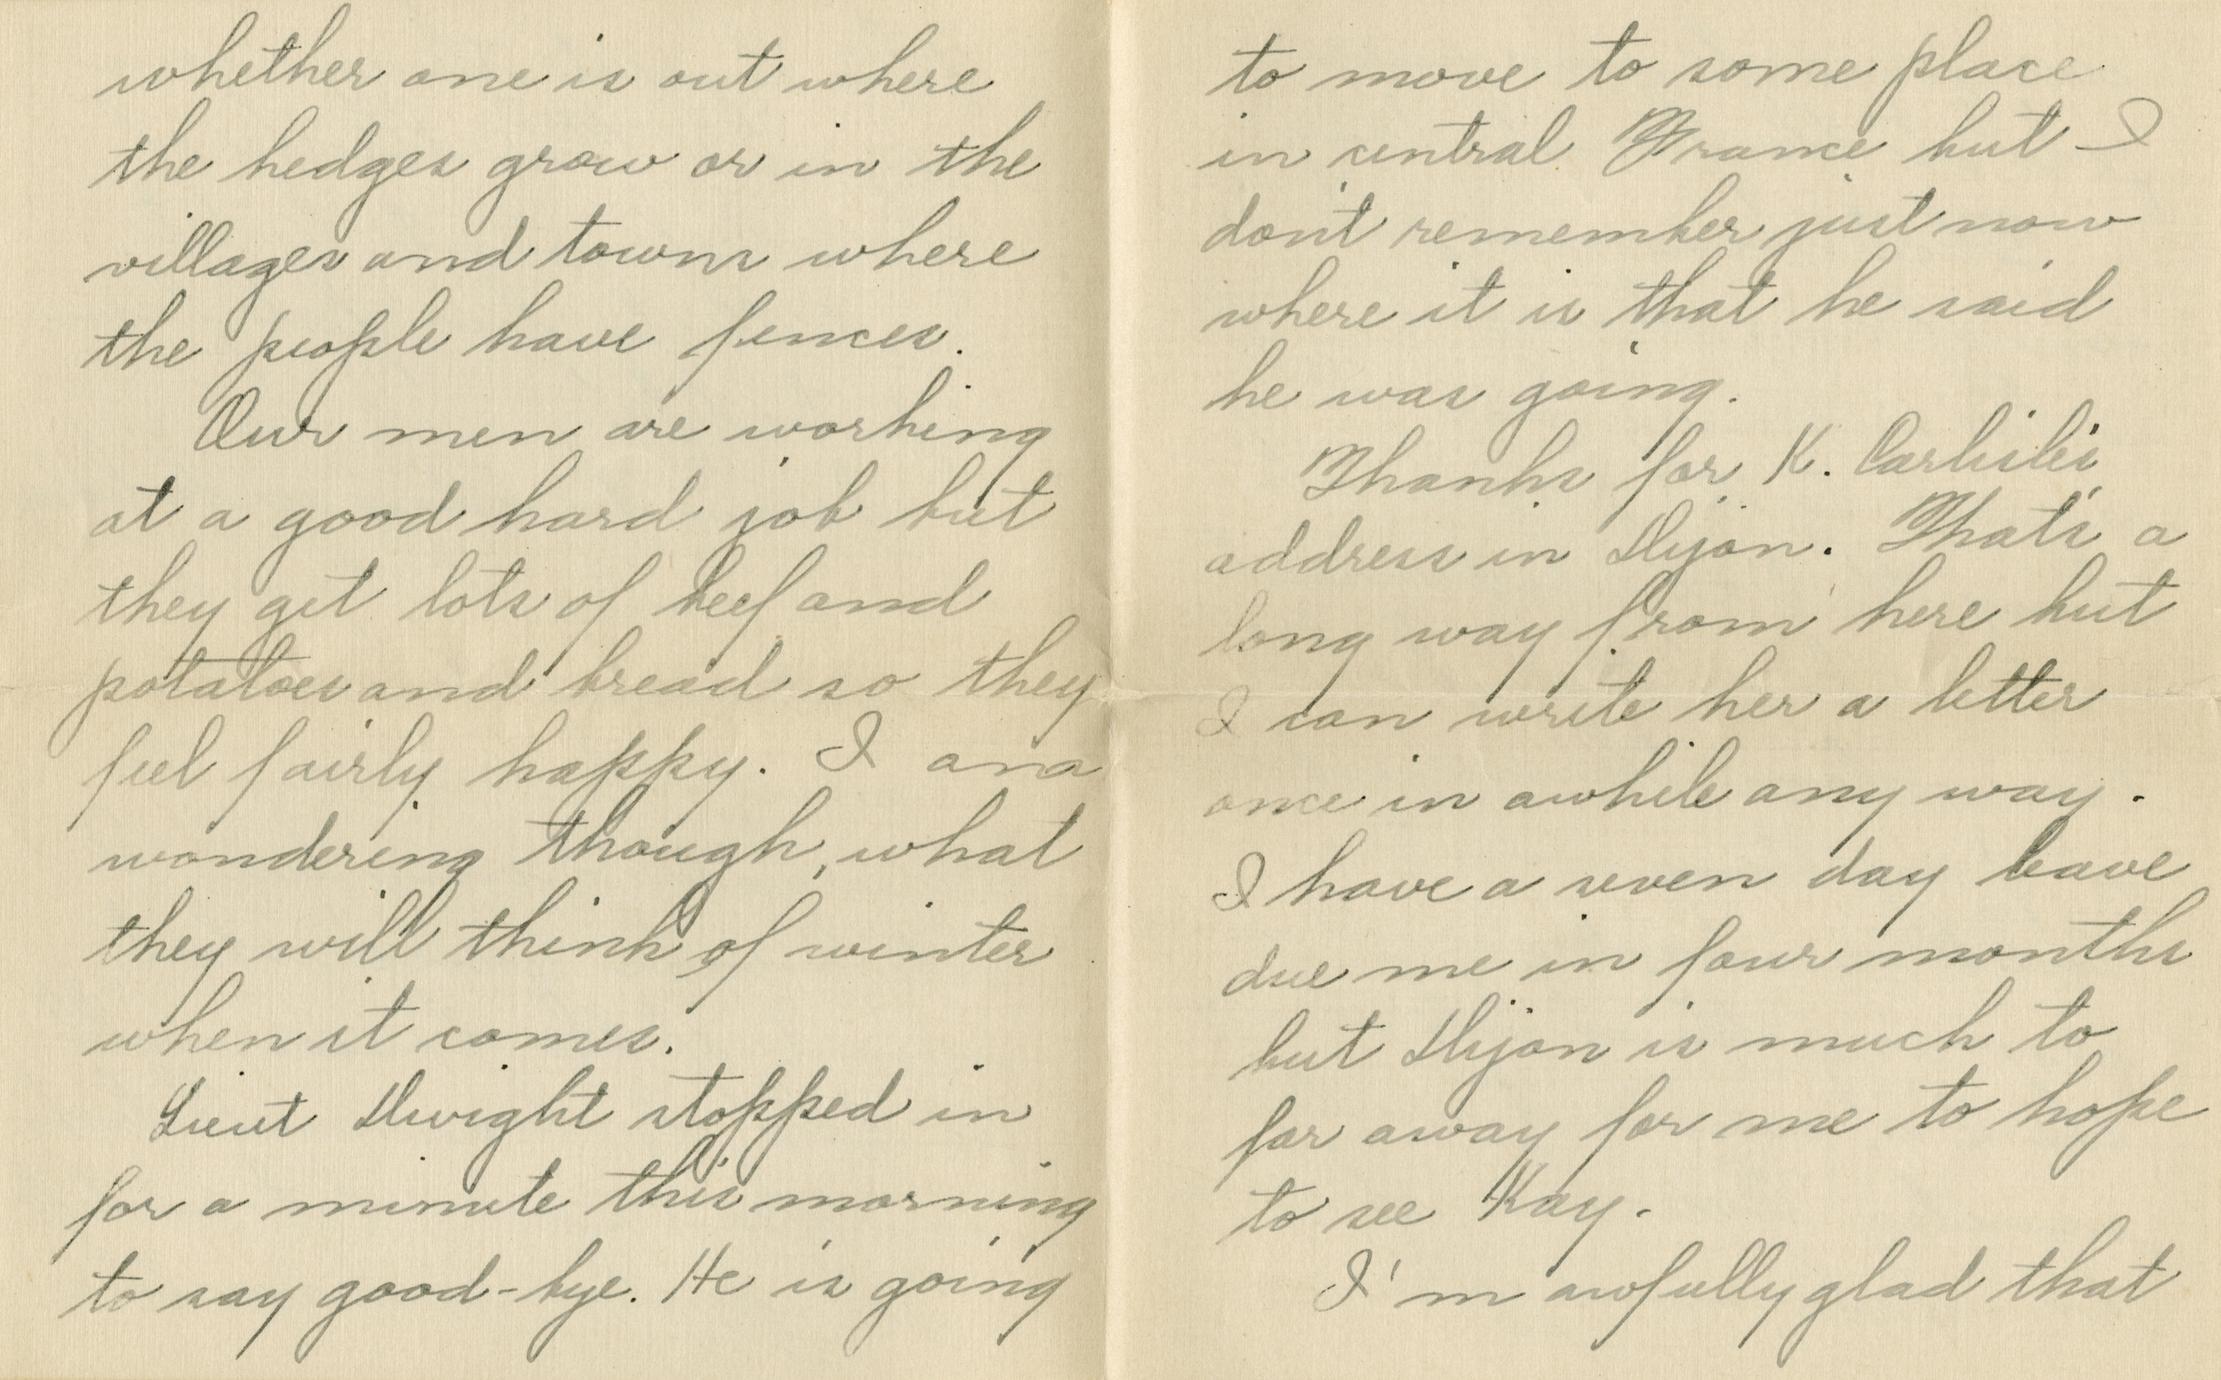 whether one is out where
the hedges grow or in the
villages and towns where
the people have fences.
Our men are working
at a good hard job but
they get lots of beef and
potatoes and bread so they
feel fairly happy. I am a
wondering though, what
they will think of winter
when it comes.
Lieut Dwight stopped in
for a minute this morning
to say good-bye. He is going
to move to some place
in central France but I
don't remember just now
where it is that he said
he was going.
Thanks for K. Carlisle's
address in Dijon. That's a
long way from here but
I can write her a letter
once in awhile any way.
I have a seven day leave
due me in four months
but Dijon is much to
far away for me to hope
to see Kay.
I'm awfully glad that